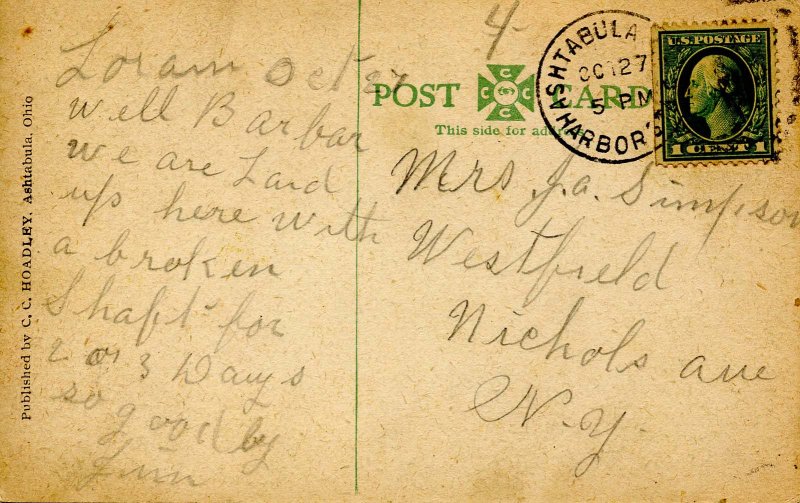 4
Loram Oct 27
Well Barbar
we are Laid
up here with
a broken
Shaft for
2 or 3 Days
so good by
Published by C. C. HOADLEY, Ashtabula, Ohio
POST CARD
This side for
ASHTABULA
OCT 27
5 PM
HARBOR
U.S. POSTAGE
1 CENT 1
Mrs J.a. Simpson
Westfield
Nichols ave
N.Y.